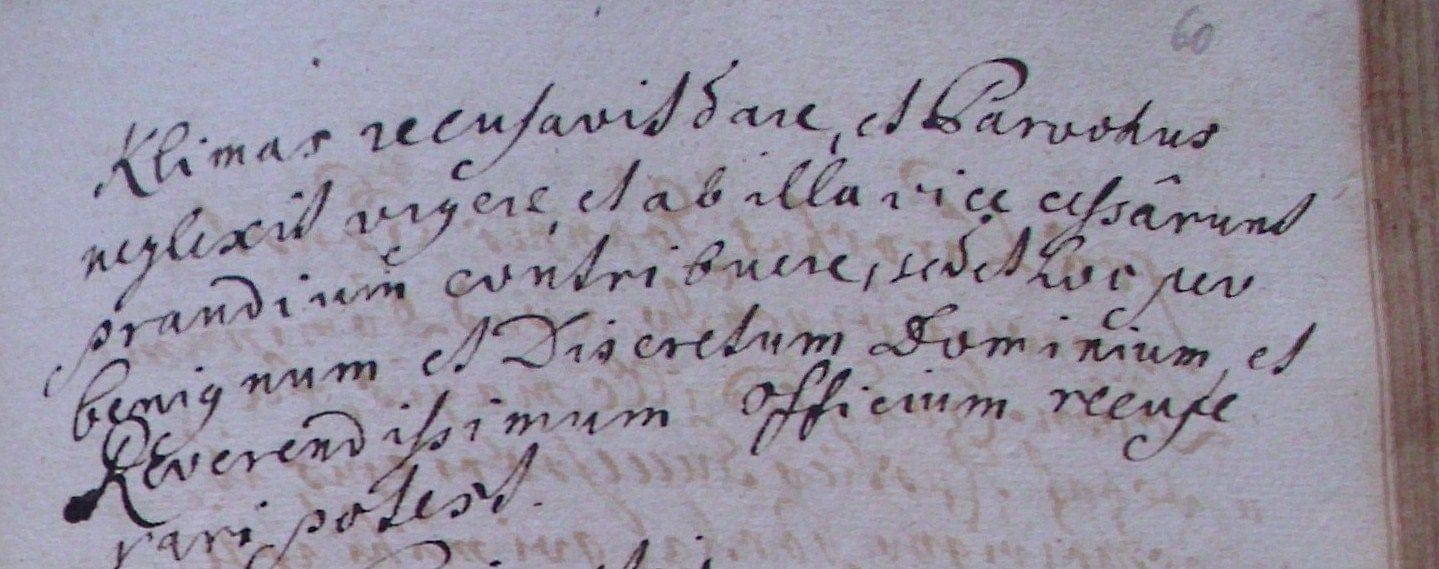 60
Klimas recusavit dare, et Parochus
neglexit urgere, et ab illa vice cessârunt
prandium contribuere, sed et hoc per
benignum et Discretum Dominium, et
Reverendissimum Officium recupe
rari potest.